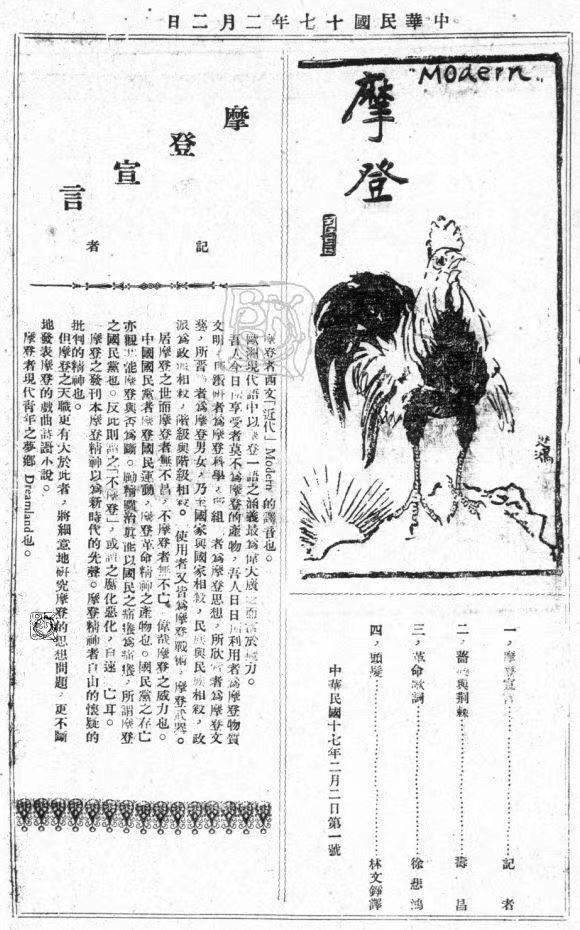 中華民國十七年二月二日
"Modern"
摩登
一,摩登宣言……記者
二,薔薇與荊棘……壽昌
三,革命歌詞……徐悲鴻
四,頭髮……林文錚譯
中華民國十七年二月二日第一號
摩登宣言
記者
摩登者西文「近代」Modern 的譯音也。
歐洲現代語中以摩登一語之涵義最為偉大廣泛而富於魔力。
吾人今日所享受者莫不為摩登的產物,吾人日日所利用者為摩登物質
文明,所者為摩登科學,所組者為摩登思想,所欣賞者為摩登文
藝,所晉者為摩登男女,乃至國家與國家相殺,民族與民族相殺,政
派為政派相殺,階級與階級相殺。使用者又皆為摩登戰術,摩登武器。
居摩登之世而摩登者無不昌,不摩登者無不亡。偉哉摩登之威力也。
中國國民黨者摩登國民運動,摩登革命精神之產物也。國民黨之存亡
亦觀其能摩登與否為斷。勵精圖治真能以國民之痛癢為痛癢,所謂摩登
之國民黨也。反此則謂之「不摩登」,或謂之腐化惡化,自速其亡耳。
摩登之發刊本摩登精神以為新時代的先聲。摩登精神者自由的懷疑的
批判的精神也。
但摩登之天職更有大於此者,將細意地研究摩登的思想問題,更不斷
地發表摩登的戲曲詩謌小說。
摩登者現代青年之夢鄉 Dreamland也。